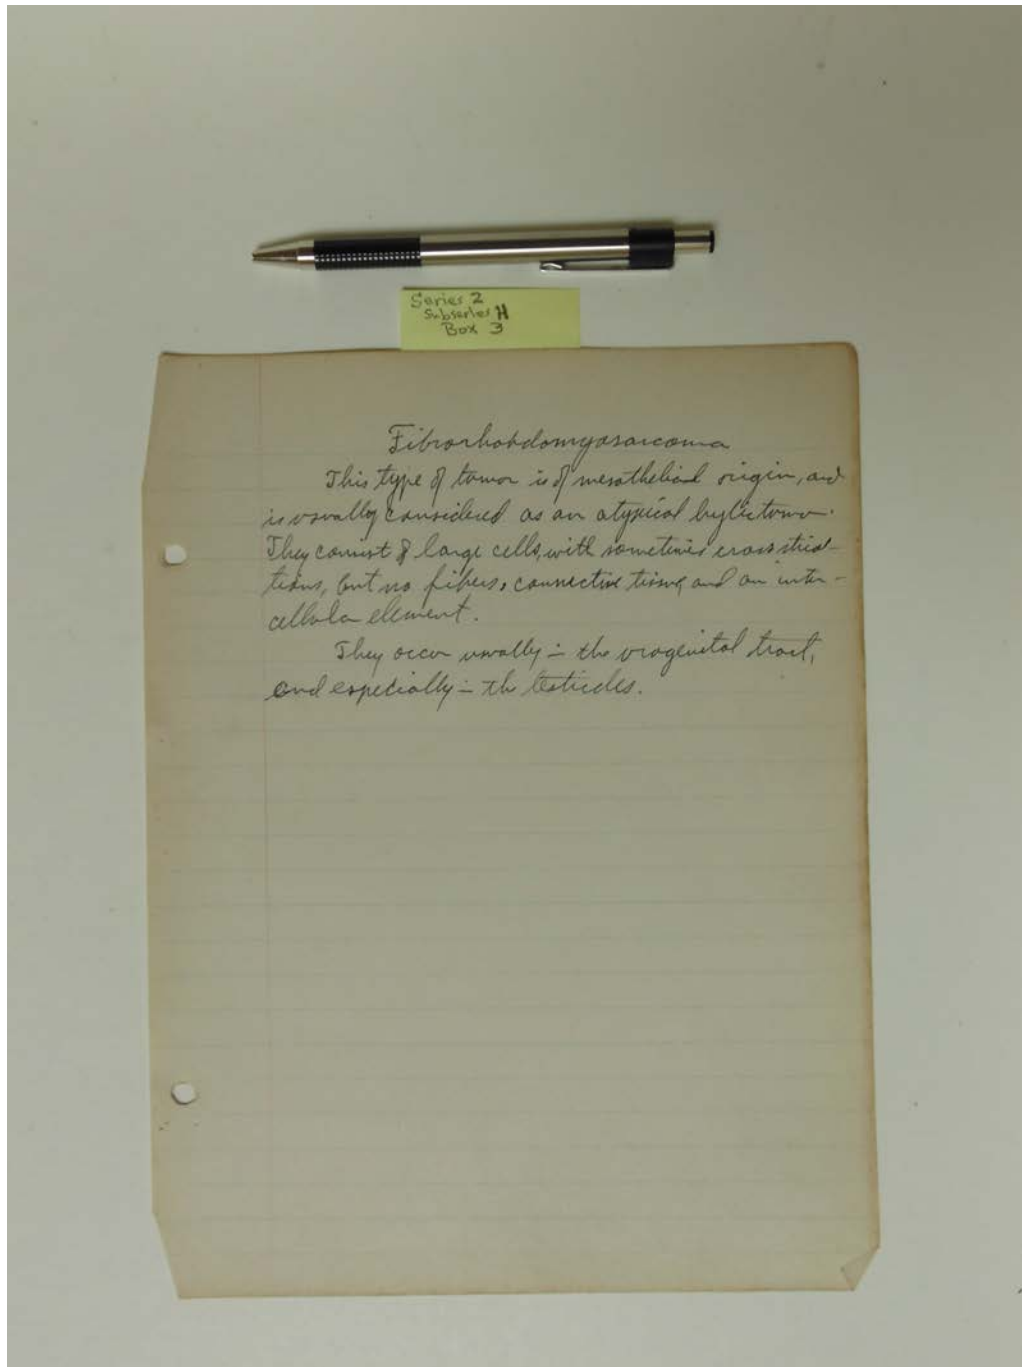 Series 2
Subseries H
Box 3
Fibrorhabdomyosarcoma
This type of tumor is of mesothelial origin, and
is usually considered as an atypical hylictoma.
They consist of large cells, with sometimes cross stria-
tions, but no fibers, connective tissue, and an inter-
cellular element.
They occur usually in the urogenital tract,
and especially in the testicles.